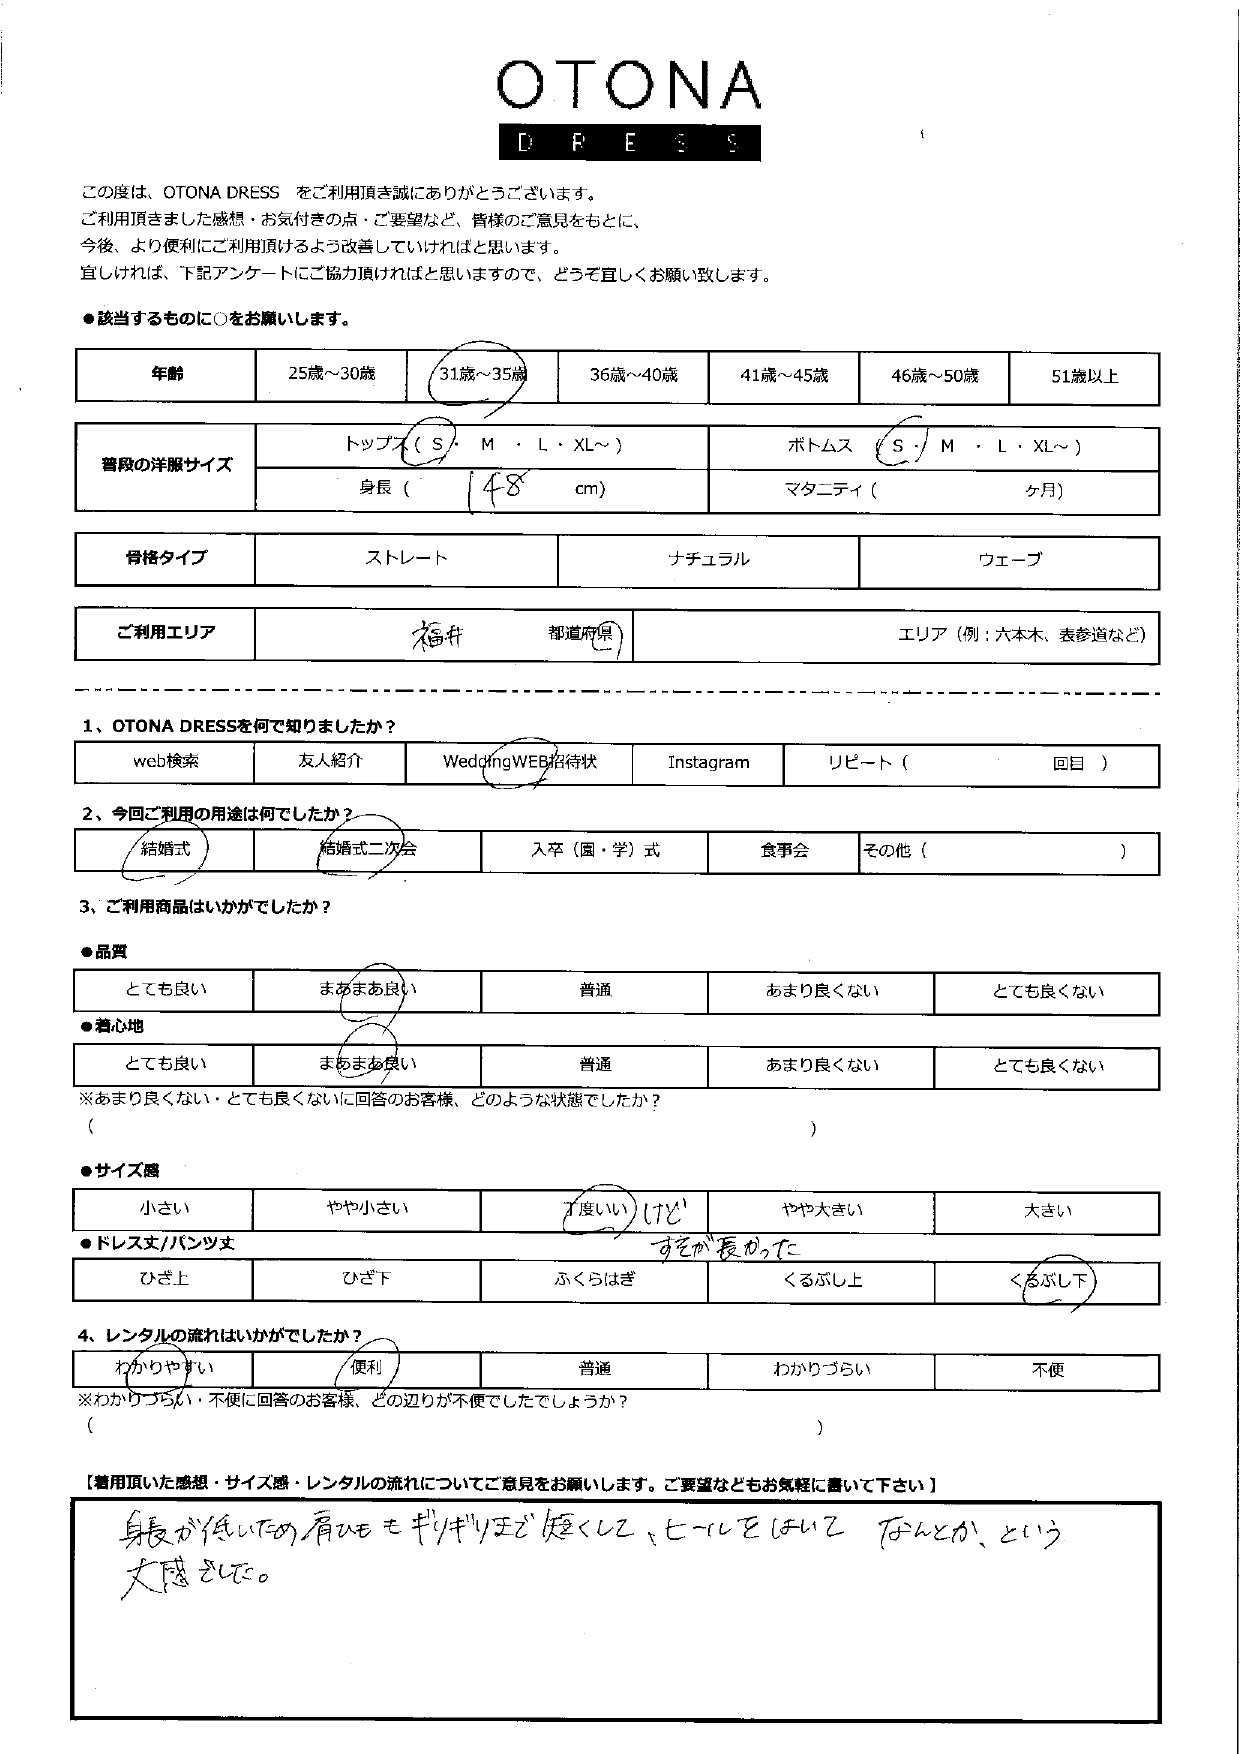 OTONA
DRESS
この度は、OTONA DRESS をご利用頂き誠にありがとうございます。
ご利用頂きました感想・お気付きの点・ご要望など、皆様のご意見をもとに、
今後、より便利にご利用頂けるよう改善していければと思います。
宜しければ、下記アンケートにご協力頂ければと思いますので、どうぞ宜しくお願い致します。
●該当するものに○をお願いします。
年齢 25歳～30歳 31歳～35歳 36歳～40歳 41歳～45歳 46歳～50歳 51歳以上
普段の洋服サイズ トップス( S ・ M ・ L ・ XL～ ) ボトムス ( S ・ M ・ L ・ XL～ )
身長 ( 148 cm) マタニティ ( ヶ月)
骨格タイプ ストレート ナチュラル ウェーブ
ご利用エリア 福井 都道府県 エリア（例：六本木、表参道など）
1、OTONA DRESSを何で知りましたか？
web検索 友人紹介 WeddingWEB招待状 Instagram リピート ( 回目 )
2、今回ご利用の用途は何でしたか？
結婚式 結婚式二次会 入卒（園・学）式 食事会 その他 ( )
3、ご利用商品はいかがでしたか？
●品質
とても良い まあまあ良い 普通 あまり良くない とても良くない
●着心地
とても良い まあまあ良い 普通 あまり良くない とても良くない
※あまり良くない・とても良くないに回答のお客様、どのような状態でしたか？
( )
●サイズ感
小さい やや小さい 丁度いい けど やや大きい 大きい
●ドレス丈/パンツ丈 すそが長かった
ひざ上 ひざ下 ふくらはぎ くるぶし上 くるぶし下
4、レンタルの流れはいかがでしたか？
わかりやすい 便利 普通 わかりづらい 不便
※わかりづらい・不便に回答のお客様、どの辺りが不便でしたでしょうか？
( )
【着用頂いた感想・サイズ感・レンタルの流れについてご意見をお願いします。ご要望などもお気軽に書いて下さい】
身長が低いため肩ひももギリギリまで短くして、ヒールをはいて なんとか、という
丈感でした。